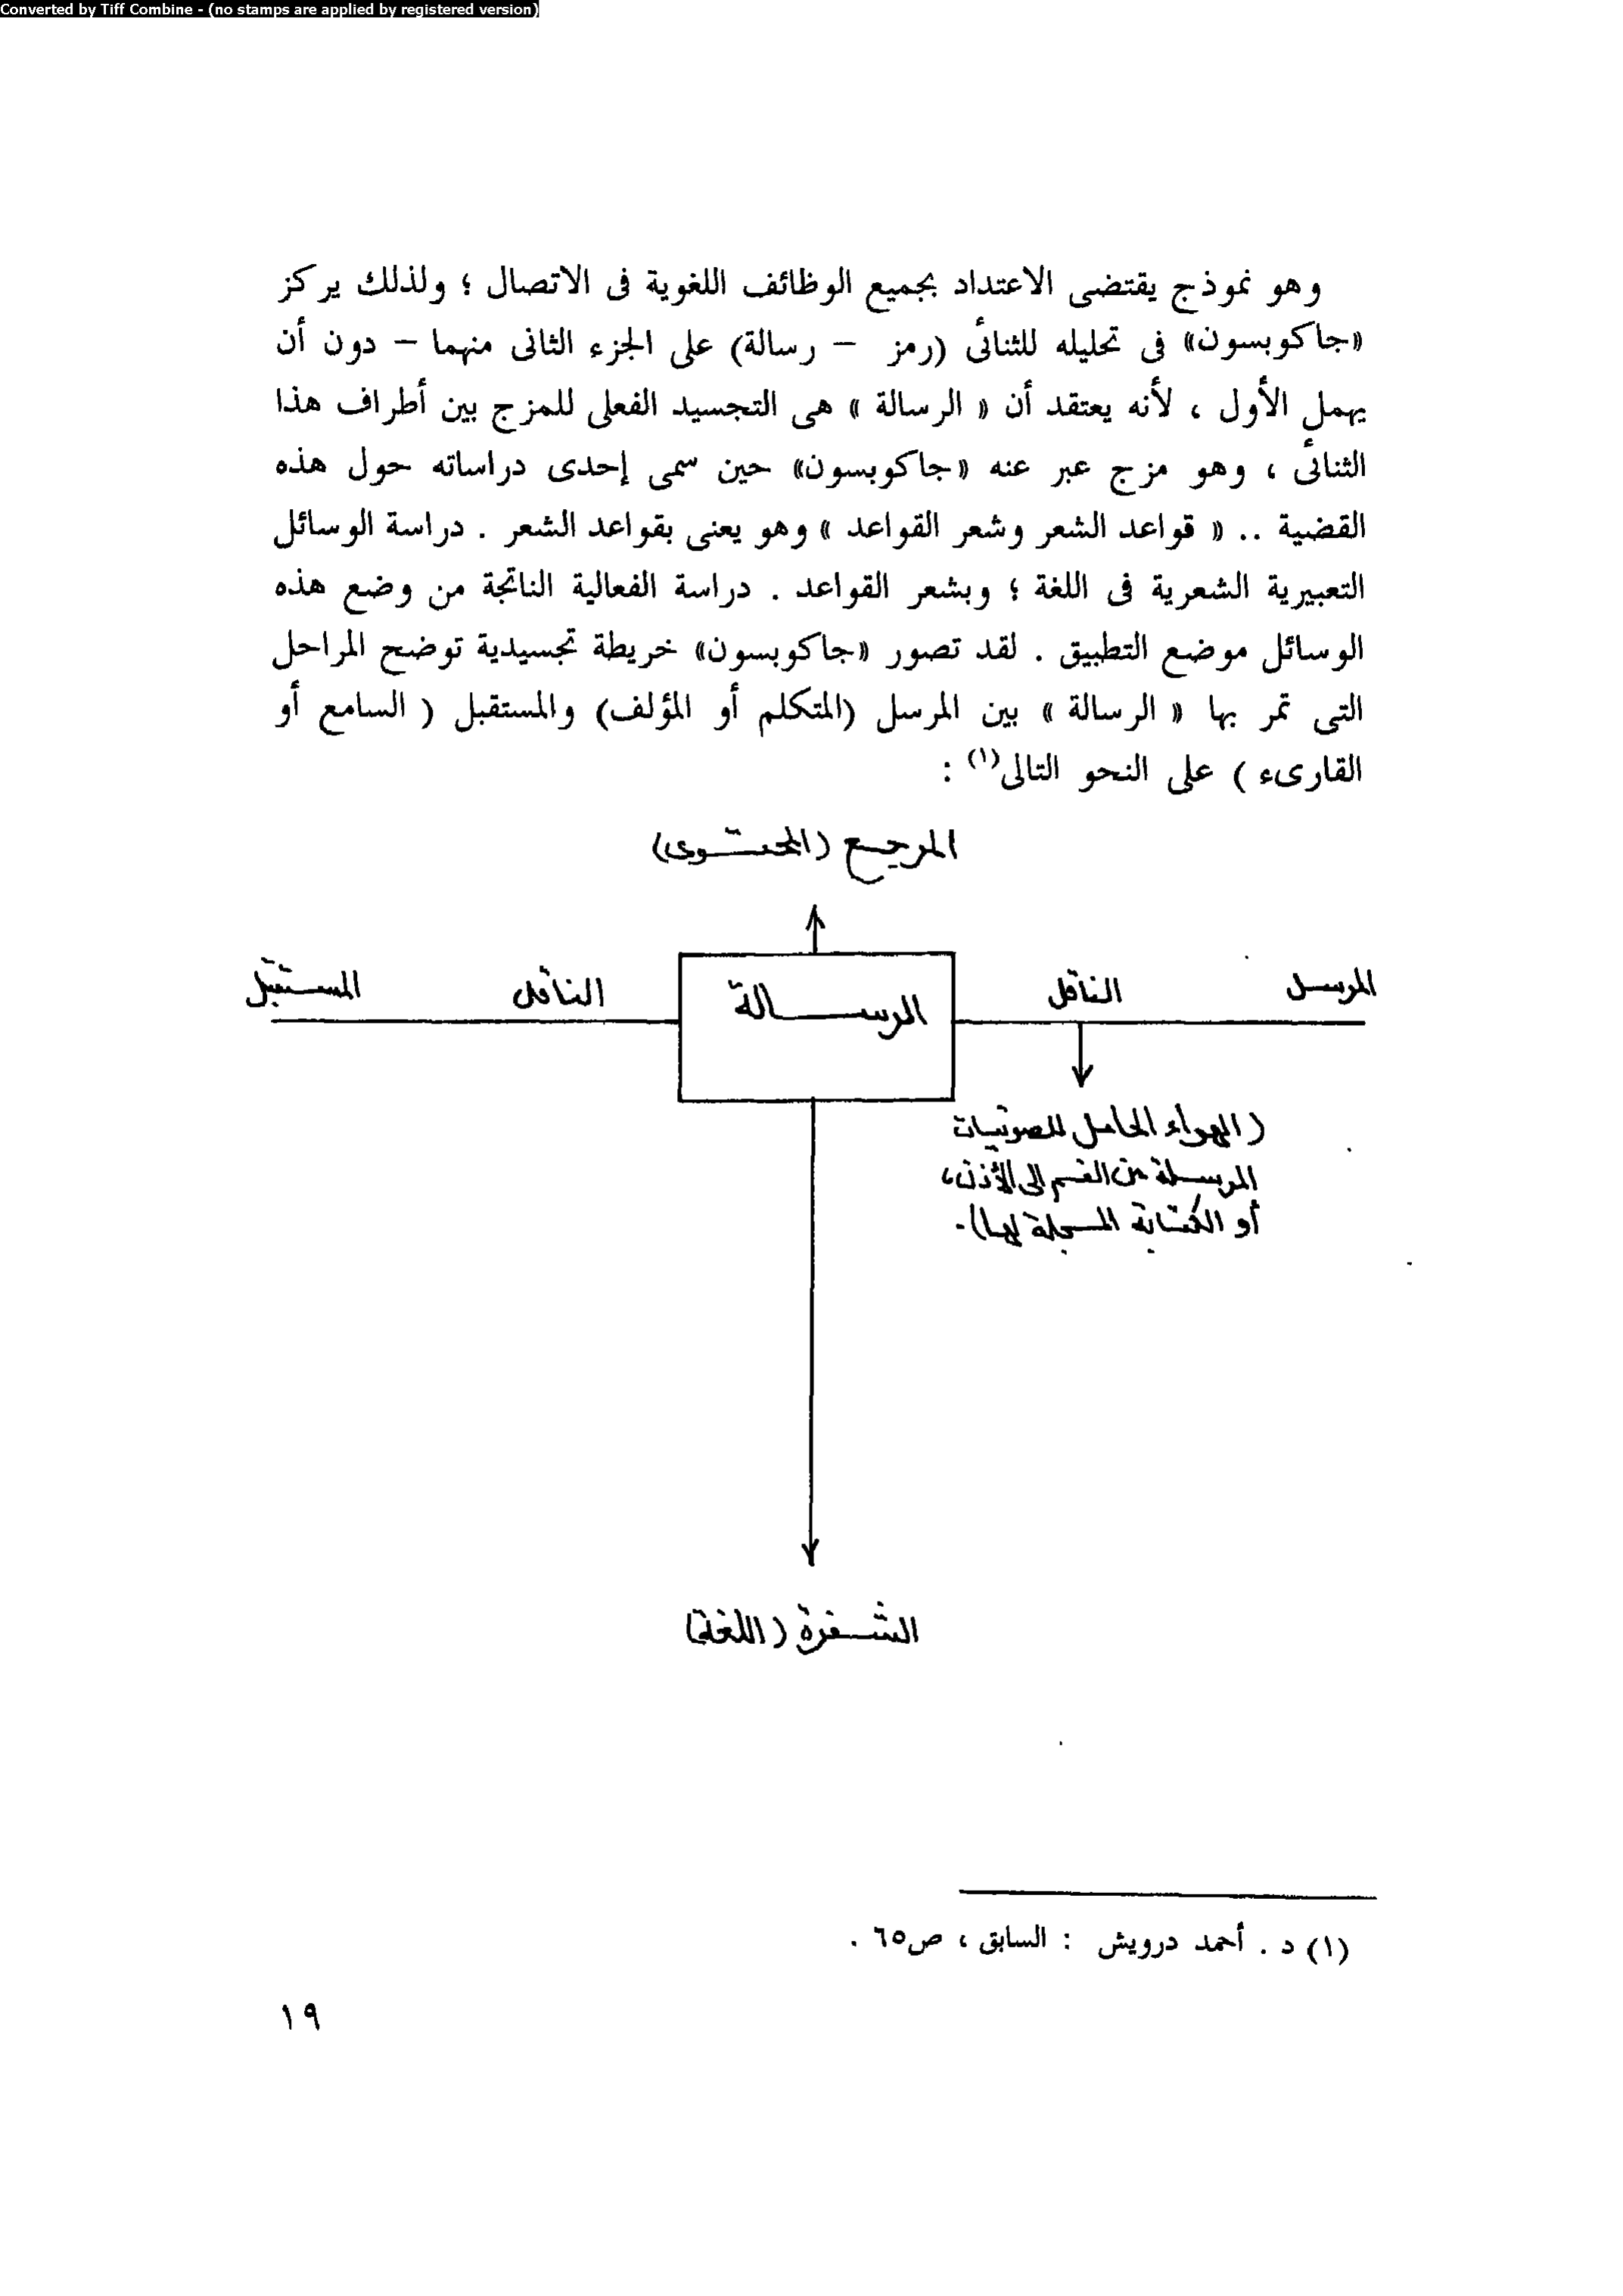 Converted by Tiff Combine - (no stamps are applied by registered version)
وهو نموذج يقتضى الاعتداد بجميع الوظائف اللغوية فى الاتصال ؛ ولذلك يركز
«جاكوبسون» فى تحليله للثنائى (رمز – رسالة) على الجزء الثانى منهما – دون أن
يهمل الأول ، لأنه يعتقد أن « الرسالة » هى التجسيد الفعلى للمزج بين أطراف هذا
الثنائى ، وهو مزج عبر عنه «جاكوبسون» حين سمى إحدى دراساته حول هذه
القضية .. « قواعد الشعر وشعر القواعد » وهو يعنى بقواعد الشعر . دراسة الوسائل
التعبيرية الشعرية فى اللغة ؛ وبشعر القواعد . دراسة الفعالية الناتجة من وضع هذه
الوسائل موضع التطبيق . لقد تصور «جاكوبسون» خريطة تجسيدية توضح المراحل
التى تمر بها « الرسالة » بين المرسل (المتكلم أو المؤلف) والمستقبل ( السامع أو
القارىء ) على النحو التالى(١) :
المرجع (المحتوى)
المرسل الناقل الرسالة الناقل المستقبل
(الهواء الحامل للصوتيات
المرسلة من الفم إلى الأذن،
أو الكتابة المسجلة لها).
الشفرة (اللغة)
(١) د . أحمد درويش : السابق ، ص٦٥ .
١٩